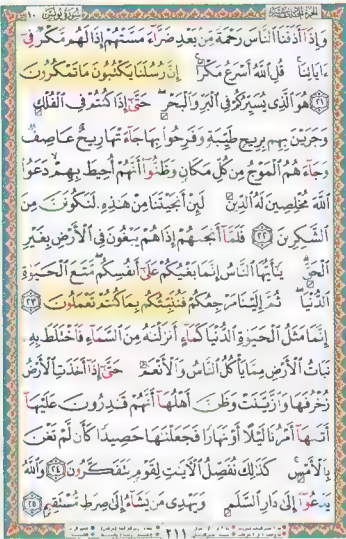 سورة يونس ١٠
وَإِذَآ أَذَقْنَا ٱلنَّاسَ رَحْمَةً مِّنۢ بَعْدِ ضَرَّآءَ مَسَّتْهُمْ إِذَا لَهُم مَّكْرٌ فِىٓ
ءَايَاتِنَا ۚ قُلِ ٱللَّهُ أَسْرَعُ مَكْرًا ۚ إِنَّ رُسُلَنَا يَكْتُبُونَ مَا تَمْكُرُونَ
٢١ هُوَ ٱلَّذِى يُسَيِّرُكُمْ فِى ٱلْبَرِّ وَٱلْبَحْرِ ۖ حَتَّىٰٓ إِذَا كُنتُمْ فِى ٱلْفُلْكِ
وَجَرَيْنَ بِهِم بِرِيحٍ طَيِّبَةٍ وَفَرِحُوا۟ بِهَا جَآءَتْهَا رِيحٌ عَاصِفٌ
وَجَآءَهُمُ ٱلْمَوْجُ مِن كُلِّ مَكَانٍ وَظَنُّوٓا۟ أَنَّهُمْ أُحِيطَ بِهِمْ ۙ دَعَوُا۟
ٱللَّهَ مُخْلِصِينَ لَهُ ٱلدِّينَ لَئِنْ أَنجَيْتَنَا مِنْ هَٰذِهِۦ لَنَكُونَنَّ مِنَ
ٱلشَّٰكِرِينَ ٢٢ فَلَمَّآ أَنجَىٰهُمْ إِذَا هُمْ يَبْغُونَ فِى ٱلْأَرْضِ بِغَيْرِ
ٱلْحَقِّ ۗ يَٰٓأَيُّهَا ٱلنَّاسُ إِنَّمَا بَغْيُكُمْ عَلَىٰٓ أَنفُسِكُم ۖ مَّتَٰعَ ٱلْحَيَوٰةِ
ٱلدُّنْيَا ۖ ثُمَّ إِلَيْنَا مَرْجِعُكُمْ فَنُنَبِّئُكُم بِمَا كُنتُمْ تَعْمَلُونَ ٢٣
إِنَّمَا مَثَلُ ٱلْحَيَوٰةِ ٱلدُّنْيَا كَمَآءٍ أَنزَلْنَٰهُ مِنَ ٱلسَّمَآءِ فَٱخْتَلَطَ بِهِۦ
نَبَاتُ ٱلْأَرْضِ مِمَّا يَأْكُلُ ٱلنَّاسُ وَٱلْأَنْعَٰمُ حَتَّىٰٓ إِذَآ أَخَذَتِ ٱلْأَرْضُ
زُخْرُفَهَا وَٱزَّيَّنَتْ وَظَنَّ أَهْلُهَآ أَنَّهُمْ قَٰدِرُونَ عَلَيْهَآ
أَتَىٰهَآ أَمْرُنَا لَيْلًا أَوْ نَهَارًا فَجَعَلْنَٰهَا حَصِيدًا كَأَن لَّمْ تَغْنَ
بِٱلْأَمْسِ ۚ كَذَٰلِكَ نُفَصِّلُ ٱلْءَايَٰتِ لِقَوْمٍ يَتَفَكَّرُونَ ٢٤ وَٱللَّهُ
يَدْعُوٓا۟ إِلَىٰ دَارِ ٱلسَّلَٰمِ وَيَهْدِى مَن يَشَآءُ إِلَىٰ صِرَٰطٍ مُّسْتَقِيمٍ ٢٥
٢١١